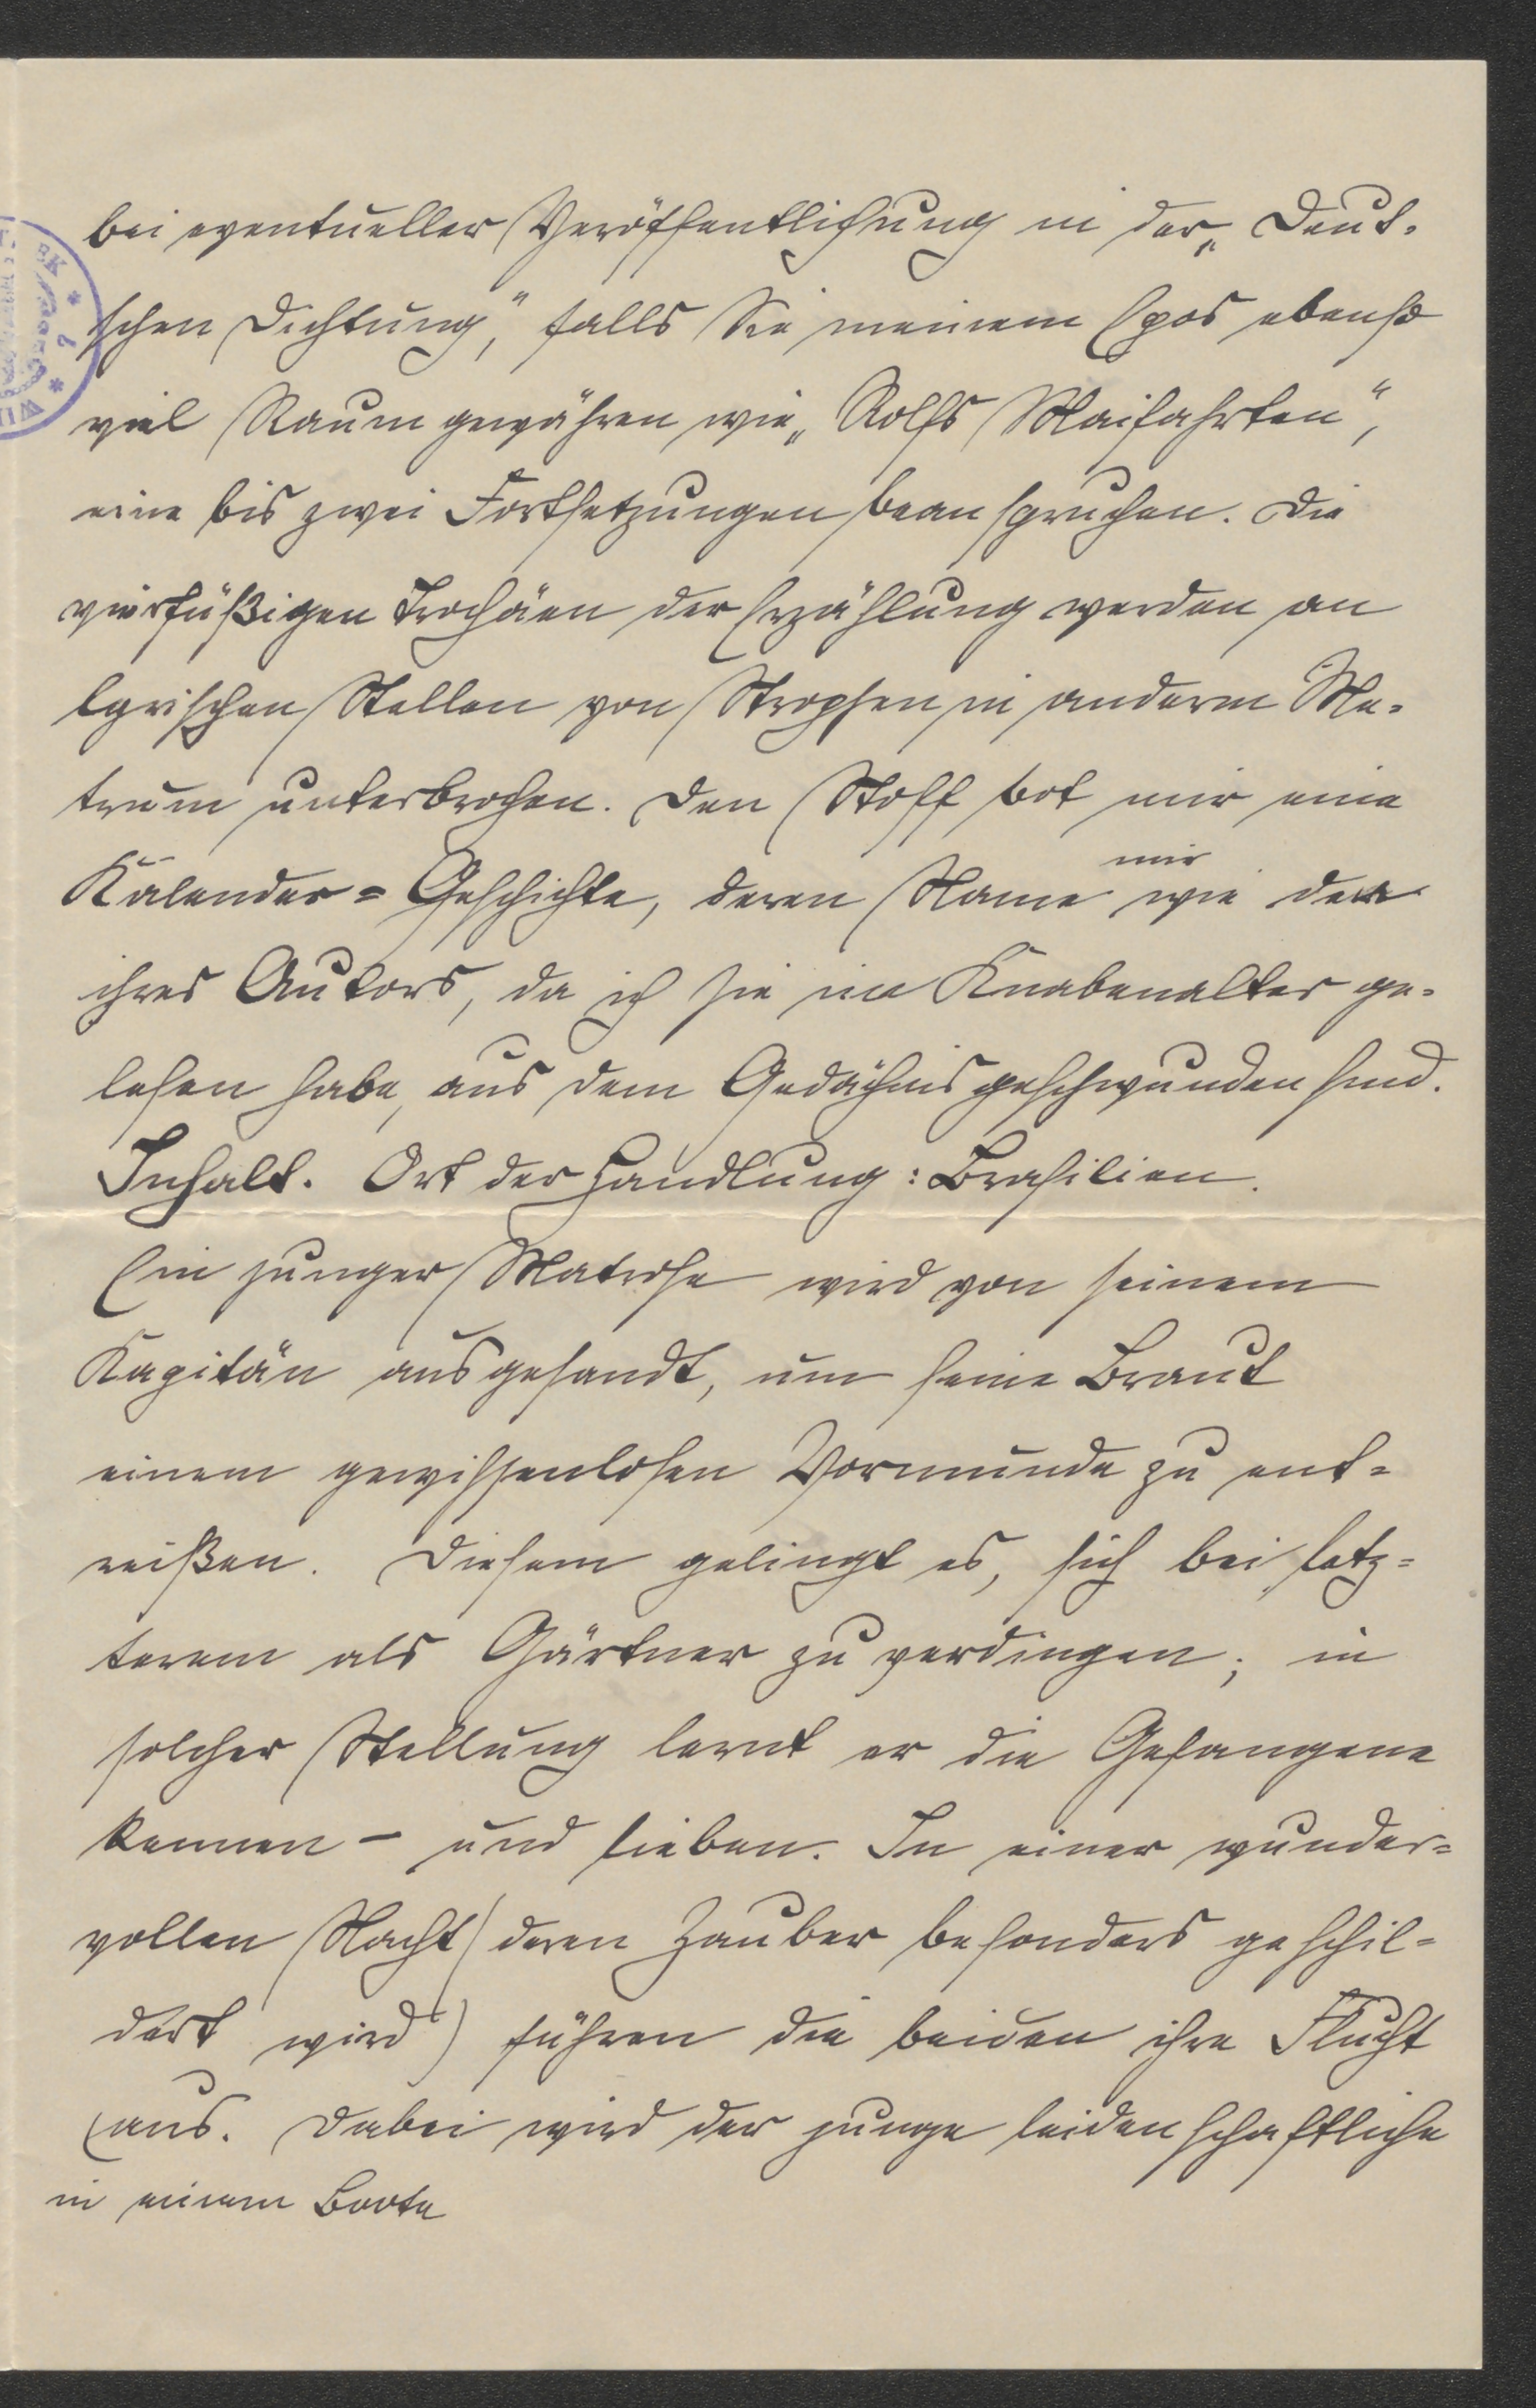 bei eventueller Veröffentlichung in der „Deut-
schen Dichtung“, falls Sie meinem Epos ebenso
viel Raum gewähren wie „Rolfs Maifahrten“,
eine bis zwei Fortsetzungen beanspruchen. Die
vierfüßigen Trochäen der Erzählung werden an
lyrischen Stellen von Strophen in anderem Me-
trum unterbrochen. Den Stoff bot mir eine
mir
Kalender-Geschichte, deren Name wie der
ihres Autors, da ich sie im Knabenalter ge-
lesen habe, aus dem Gedächnis geschwunden sind.
Inhalt. Ort der Handlung: Brasilien.
Ein junger Matrose wird von seinem
Kapitän ausgesandt, um seine Braut
einem gewissenlosen Vormunde zu ent-
reißen. Diesem gelingt es, sich bei letz-
terem als Gärtner zu verdingen; in
solcher Stellung lernt er die Gefangene
kennen – und lieben. In einer wunder-
vollen Nacht (deren Zauber besonders geschil-
dert wird) führen die beiden ihre Flucht
aus. Dabei wird der junge leidenschaftliche
in einem Boote